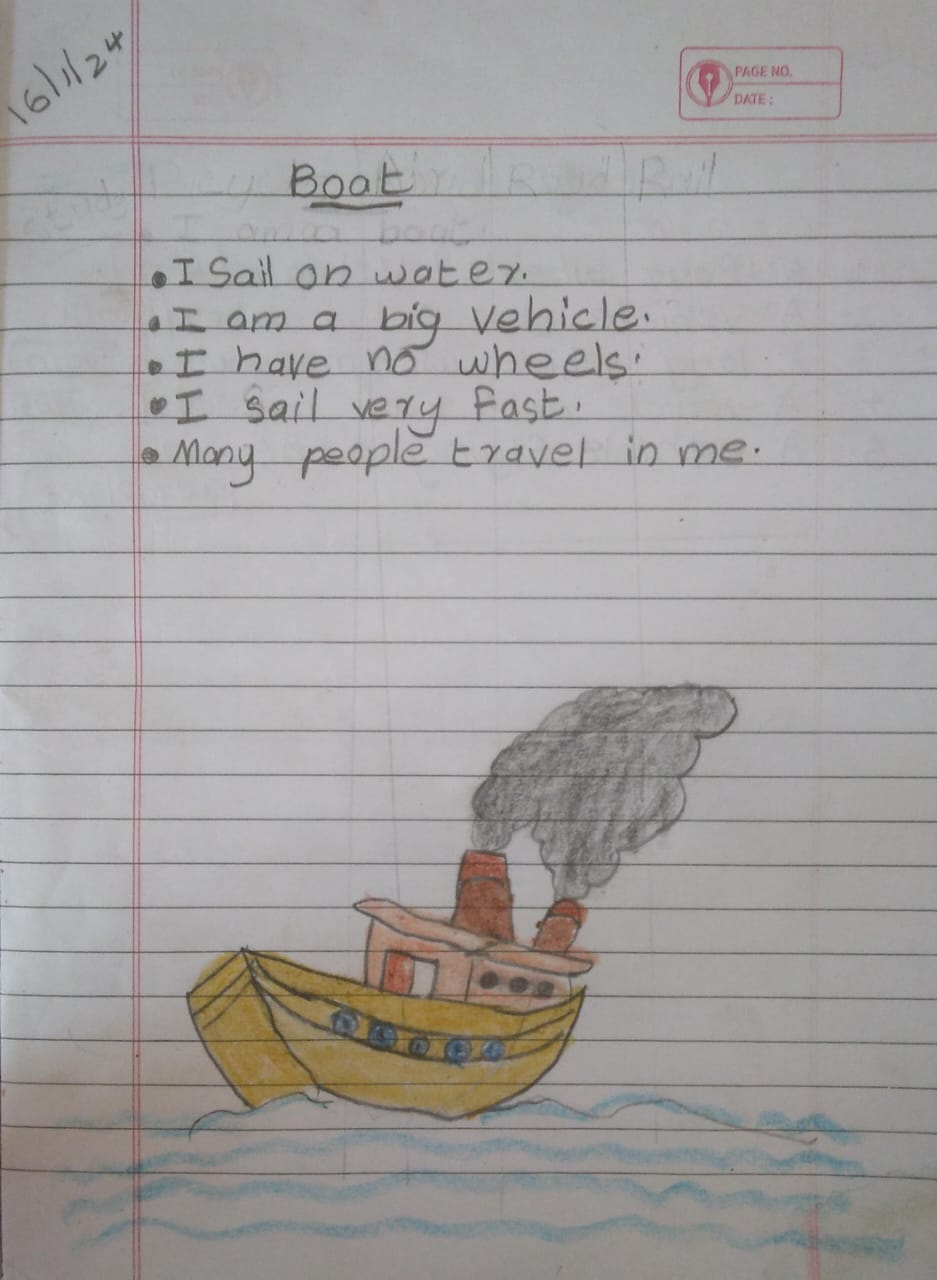 16/1/24
PAGE NO.
DATE :
Boat
I am a boat.
• I Sail on water.
• I am a big vehicle.
• I have no wheels.
• I sail very fast.
• Many people travel in me.